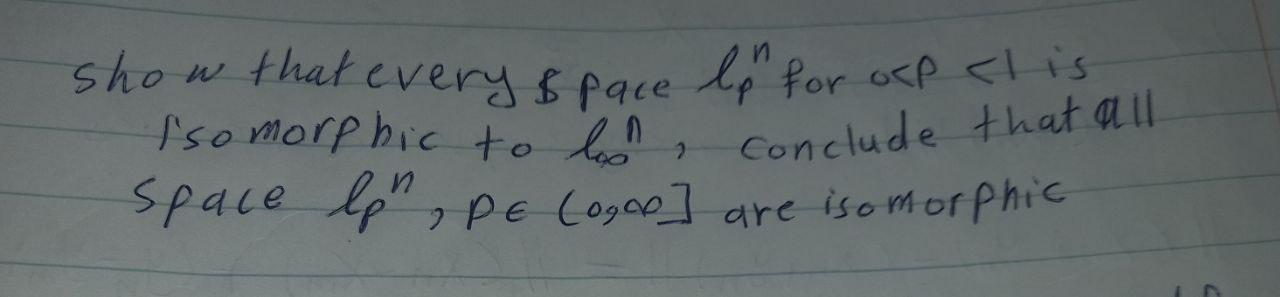 show that every space lₚⁿ for 0<p <1 is
isomorphic to l∞ⁿ, conclude that all
space lₚⁿ, p∈ (0,∞] are isomorphic